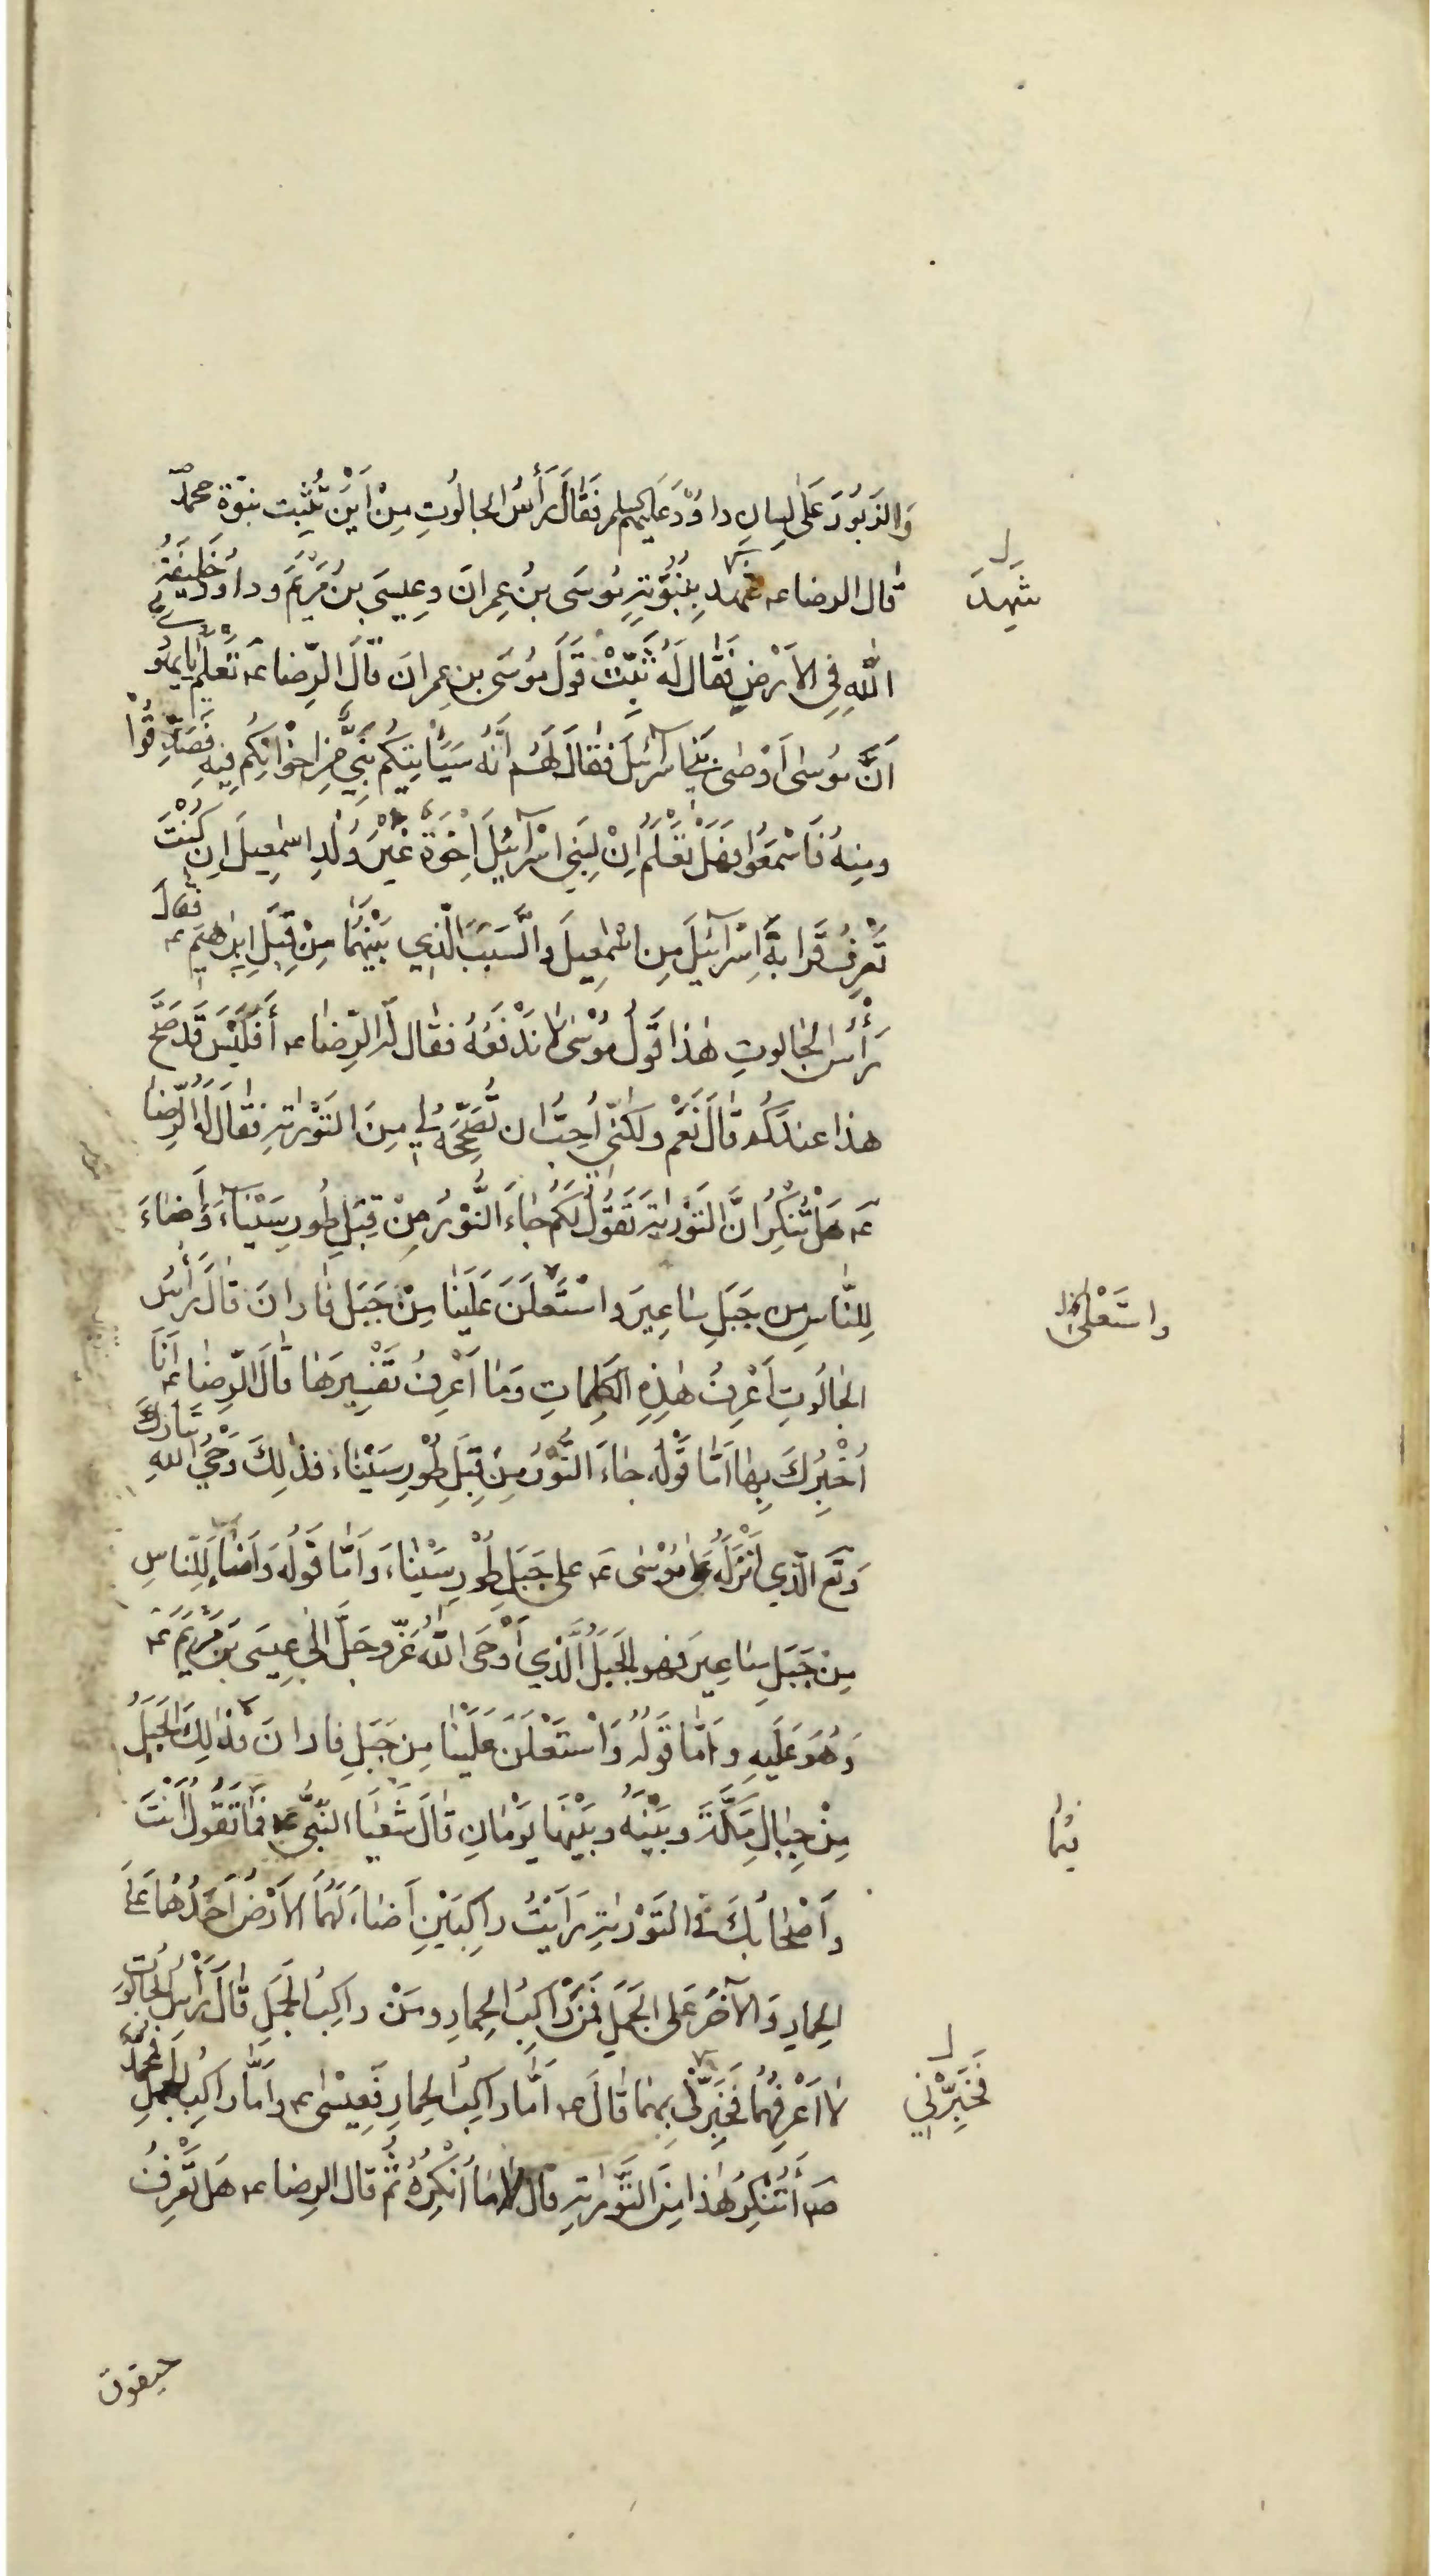 وَالزَبُورَ عَلىٰ لِسانِ داوُدَ عَلَيهِم السلم فَقَالَ رَأْسُ الجالُوتِ مِنْ اَيْنَ تُثْبِت نبوّة محمّد
قال الرضا عـ شهد بِنُبُوَّتِهِ مُوسَى بنُ عِمرانَ وعِيسَى بنُ مَرْيَمَ وداوُد خَليفَةُ
شَهِدَ
اللهِ فِي الاَرْضِ فَقال لَهُ ثَبِّتْ قَولَ مُوسَى بن عِمرانَ قالَ الرّضا عـ تَعْلَم يا يهودي
اَنَّ مُوسٰى اَوْصٰى بَني اسرآئيلَ فقالَ لَهُم اَنَّهُ سَيَأْتِيكُم نَبِيٌّ مِن اِخْوانِكُم فِيهِ فَصَدِّقُوْا
ومِنهُ فَاسْمَعُوا فهَلْ تَعْلَمُ اَنْ لِبَنِي اسْرآئيلَ اِخْوَةً غَيْرَ وُلْدِ اسْمٰعِيلَ اِن كُنْتَ
تَعْرِفُ قَرابَةَ اِسْرآئيلَ مِن اسْمٰعِيلَ والسَّبَبَ الَّذِي بَيْنَهُما مِنْ قِبَلِ اِبرٰهيم عـ فَقالَ
رَأْسُ الجٰالوتِ هٰذا قَولُ مُوْسٰى لا نَدْفَعُهُ فقال لَهُ الرّضا عـ أَفَلَيْسَ قَد صَحَّ
هذا عندَكُم قالَ نَعَم ولكنّي اُحِبُّ ان تُصَحِّحَهُ لي مِنَ التَوْرٰيةِ فقالَ لَهُ الرِّضا
عـ هَلْ تُنْكِرُ انَّ التَوْرٰيةَ تَقُولُ لَكُم جٰاءَ النُّوْرُ مِنْ قِبَلِ طُورِ سَيْنآءَ وَأَضاءَ
لِلنَّاسِ مِن جَبَلِ ساعِيرَ واسْتَعْلَنَ عَلَينا مِنْ جَبَلِ فارانَ قالَ رَأْسُ
واستَعْلىٰ
الجالُوتِ اَعْرِفُ هٰذِهِ الكَلِماتِ وَما اَعْرِفُ تَفْسِيرَها قالَ الرّضا عـ اَنَا
اُخْبِرُكَ بِها اَمّا قَوْلُهُ جاءَ النُّوْرُ مِن قِبَلِ طُوْرِ سَيْنآءَ فذٰلِكَ وَحْيُ اللهِ تبارك
وتَعَ الَّذِي اَنْزَلَهُ عَلىٰ مُوْسٰى عـ على جَبَلِ طُوْرِ سَيْنآءَ وَاَمّا قَوْلُه وَاَضاءَ لِلنّاسِ
مِنْ جَبَلِ ساعِيرَ فهو الجَبَلُ الَّذِي اَوْحَى اللهُ عَزَّ وجَلَّ اِلىٰ عِيسَى بنَ مَرْيَمَ عـ
وَهُوَ عَلَيهِ واَمّا قَولُهُ وَاسْتَعْلَنَ عَلَيْنا مِن جَبَلِ فارانَ فذٰلِكَ الجَبَلُ
مِنْ جِبالِ مَكَّةَ وبَيْنَهُ وبَيْنَها يَوْمانِ قالَ شَعْيَا النّبيُّ عـ فَمَا تَقُولُ اَنْتَ
فيما
واَصْحابُكَ فى التَوْرٰيةِ رَاَيْتُ راكِبَيْنِ اَضاءَ لَهُمَا الاَرْضُ اَحَدُهُما عَلىَ
الحِمارِ وَالآخَرُ عَلى الجَمَلِ فَمَنْ راكِبُ الحِمارِ ومَنْ راكِبُ الجَمَلِ قالَ رَأْسُ الجالُوت
لا اَعْرِفُهُما فَخَبِّرْني بِهِما قالَ عـ اَمّا راكِبُ الحِمارِ فَعِيسٰى عـ واَمّا راكِبُ الجمَلِ فَمحمّدٌ
فَخَبِّرْنِي
صـ أَتُنْكِرُ هٰذا مِنَ التَّوْرٰيةِ قال لا ما اُنْكِرُهُ ثُمَّ قال الرضا عـ هَل تَعْرِفُ
حيقوق